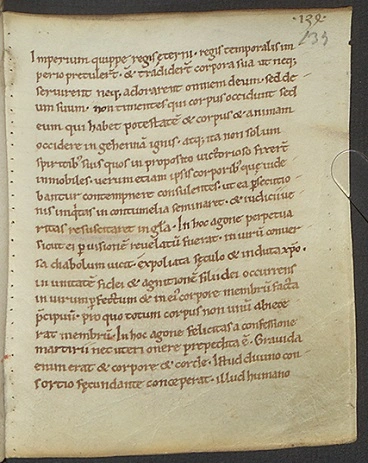 ·132·
133
Imperium quippe regis ęterni · regis temporalis im
perio pretuler̄t · & tradider̄t corpora sua ut neq;
seruirent neq; adorarent omnem deum · sed dē
um suum · non timentes qui corpus occidunt sed
eum qui habet potestatē & corpus & animam
occidere in gehennā ignis · atq; ita non solum
spiritib; suis quos in proposito uictorioso fixer̄t
inmobiles · uerum etiam ipsis corporib; quę uide
bantur contempnere consulentes · ut ea p̱secutio
nis iniq̇tas in contumelia seminaret · & iudicii ue
ritas resuscitaret in gl̄a · In hoc agone perpetua
sicut ei p̱ uisionē reuelatū fuerat · in uirū conuer
sa diabolum uicit · expoliata sęculo & induta xp̄o ·
in unitatē fidei & agnitionē filii dei occurrens
in uirum p̱fectum & in ei; corpore membrū facta
p̄cipuū · pro quo totum corpus non unū abiece
rat membrū · In hoc agone felicitas a confessione
martirii nec uteri onere prępedita ē · Grauida
enim erat & corpore & corde · Istud diuino con
sortio fęcundante conceperat · illud humano